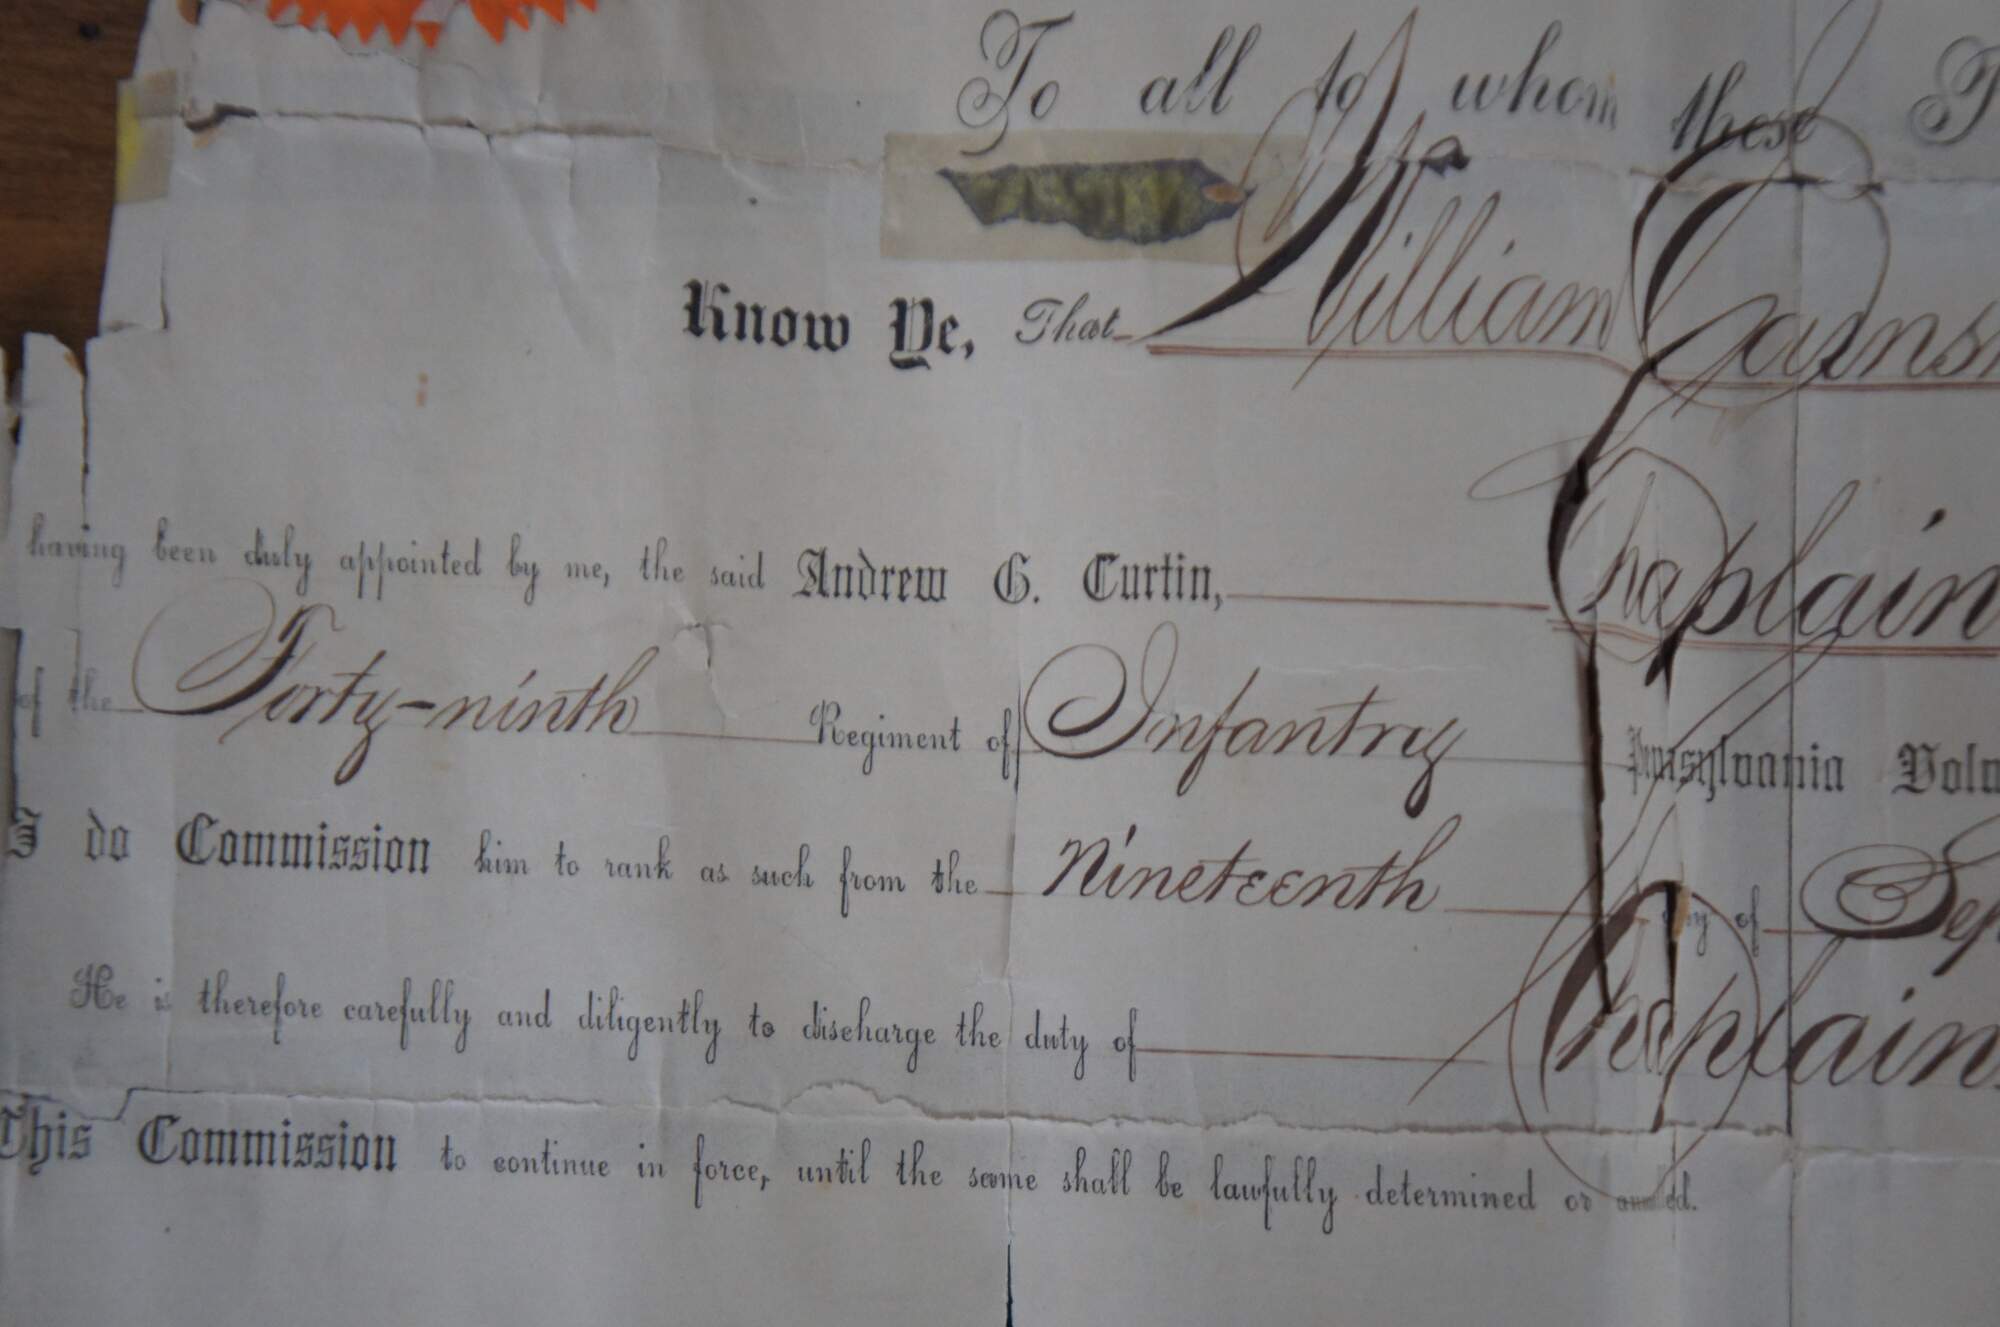 To all to whom these
Know Ye, That William
having been duly appointed by me, the said Andrew G. Curtin, Chaplain
of the Forty-ninth Regiment of Infantry Pennsylvania
I do Commission him to rank as such from the Nineteenth day of Sep
He is therefore carefully and diligently to discharge the duty of Chaplain
This Commission to continue in force, until the same shall be lawfully determined or